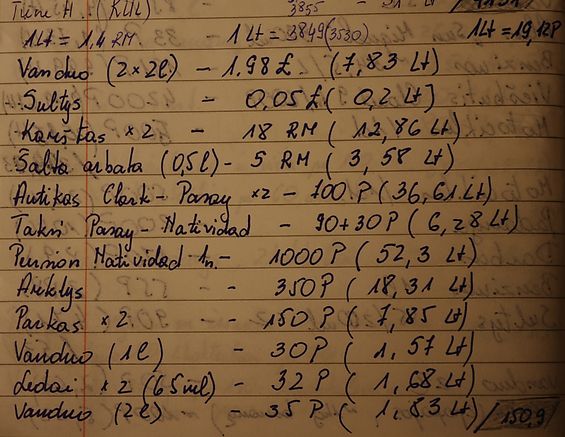 Tune H. (KUL) 3855
1Lt = 1,4 RM. 1Lt = 3849 (3530) 1Lt = 19,12P
Vanduo (2×2l.) - 1,98£ (7,83 Lt)
Sultys - 0,05£ (0,2 Lt)
Karštas ×2 - 18 RM (12,86 Lt)
Šalta arbata (0,5l) - 5 RM (3,58 Lt)
Autikas Clark - Pasay ×2 - 700 P (36,61 Lt)
Taksi Pasay - Natividad - 90+30P (6,28 Lt)
Pension Natividad 1n. - 1000 P (52,3 Lt)
Arklys - 350 P (18,31 Lt)
Parkas ×2. - 150 P (7,85 Lt)
Vanduo (1l) - 30P (1,57 Lt)
Ledai ×2 (65ml) - 32 P (1,68 Lt)
Vanduo (2l) - 35 P (1,83 Lt) /150,9